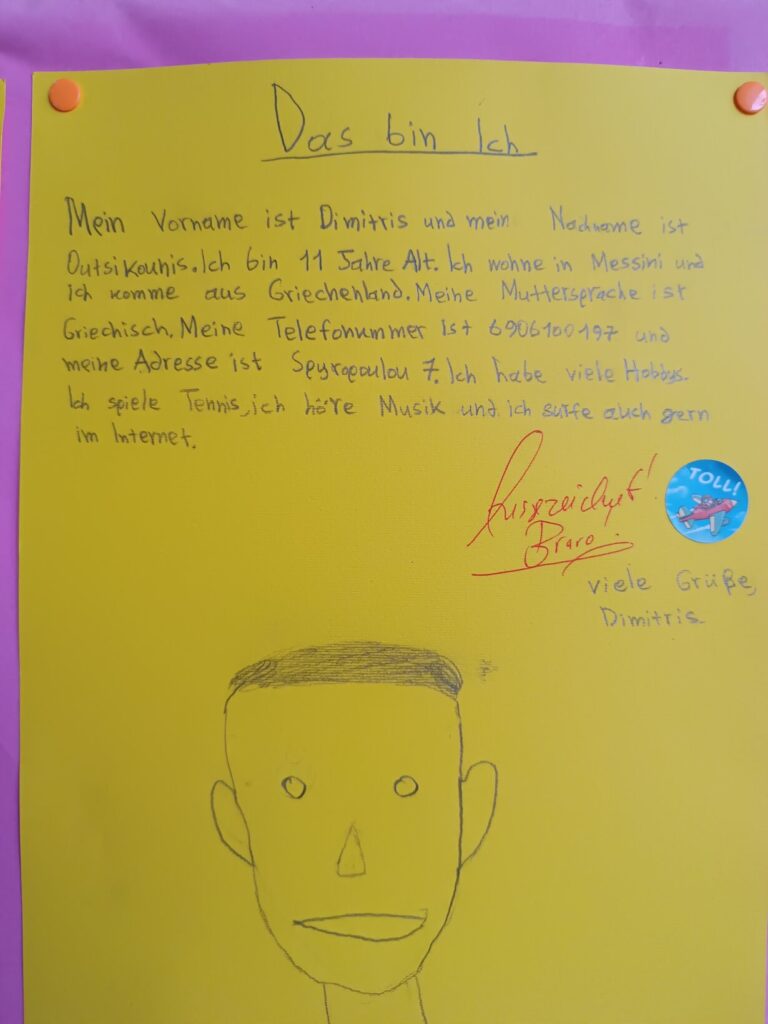 Das bin Ich
Mein Vorname ist Dimitris und mein Nachname ist
Outsikounis. Ich bin 11 Jahre Alt. Ich wohne in Messini und
ich komme aus Griechenland. Meine Muttersprache ist
Griechisch. Meine Telefonummer Ist 6906100197 und
meine Adresse ist Spyropoulou 7. Ich habe viele Hobbys.
Ich spiele Tennis, ich höre Musik und ich surfe auch gern
im Internet.
Ausgezeichnet!
Bravo.
TOLL!
viele Grüße,
Dimitris